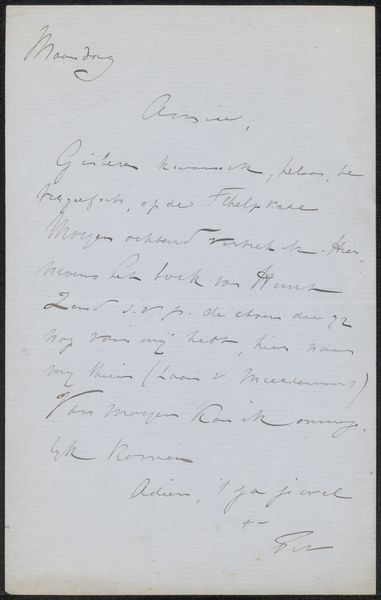 Maandag
Amice,
Gisteren kwam ik, helaas, te
vergeefsch, op de Schelpkade
Morgen ochtend vertrek ik. Hier
nevens het boek van Hunt
Zend s.v.p. de etsen die gij
nog van mij hebt, hier naar
mij thuis (Laan v Meerdervoort)
Van morgen kan ik onmoge
lijk komen
Adieu, 't ga je wel